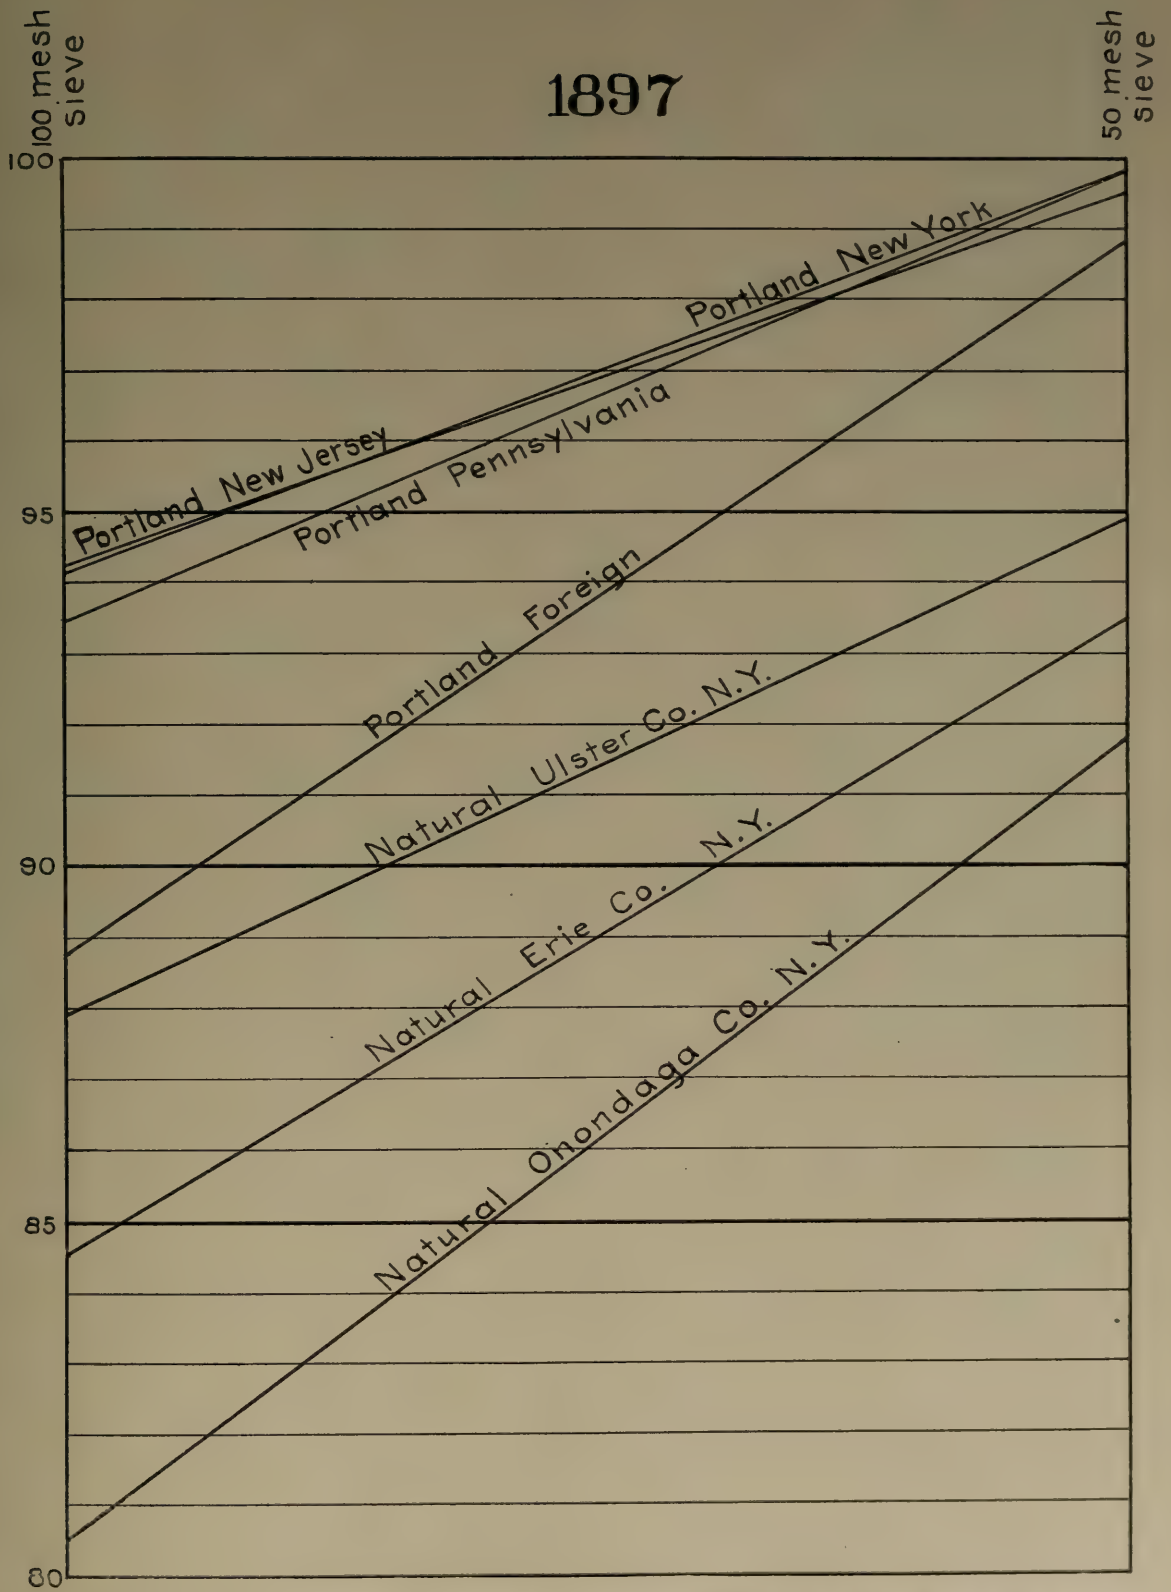 100 mesh
sieve
1897
50 mesh
sieve
100
Portland New York
Portland New Jersey
Portland Pennsylvania
95
Portland Foreign
Natural Ulster Co. N.Y.
90
Natural Erie Co. N.Y.
Natural Onondaga Co. N.Y.
85
80